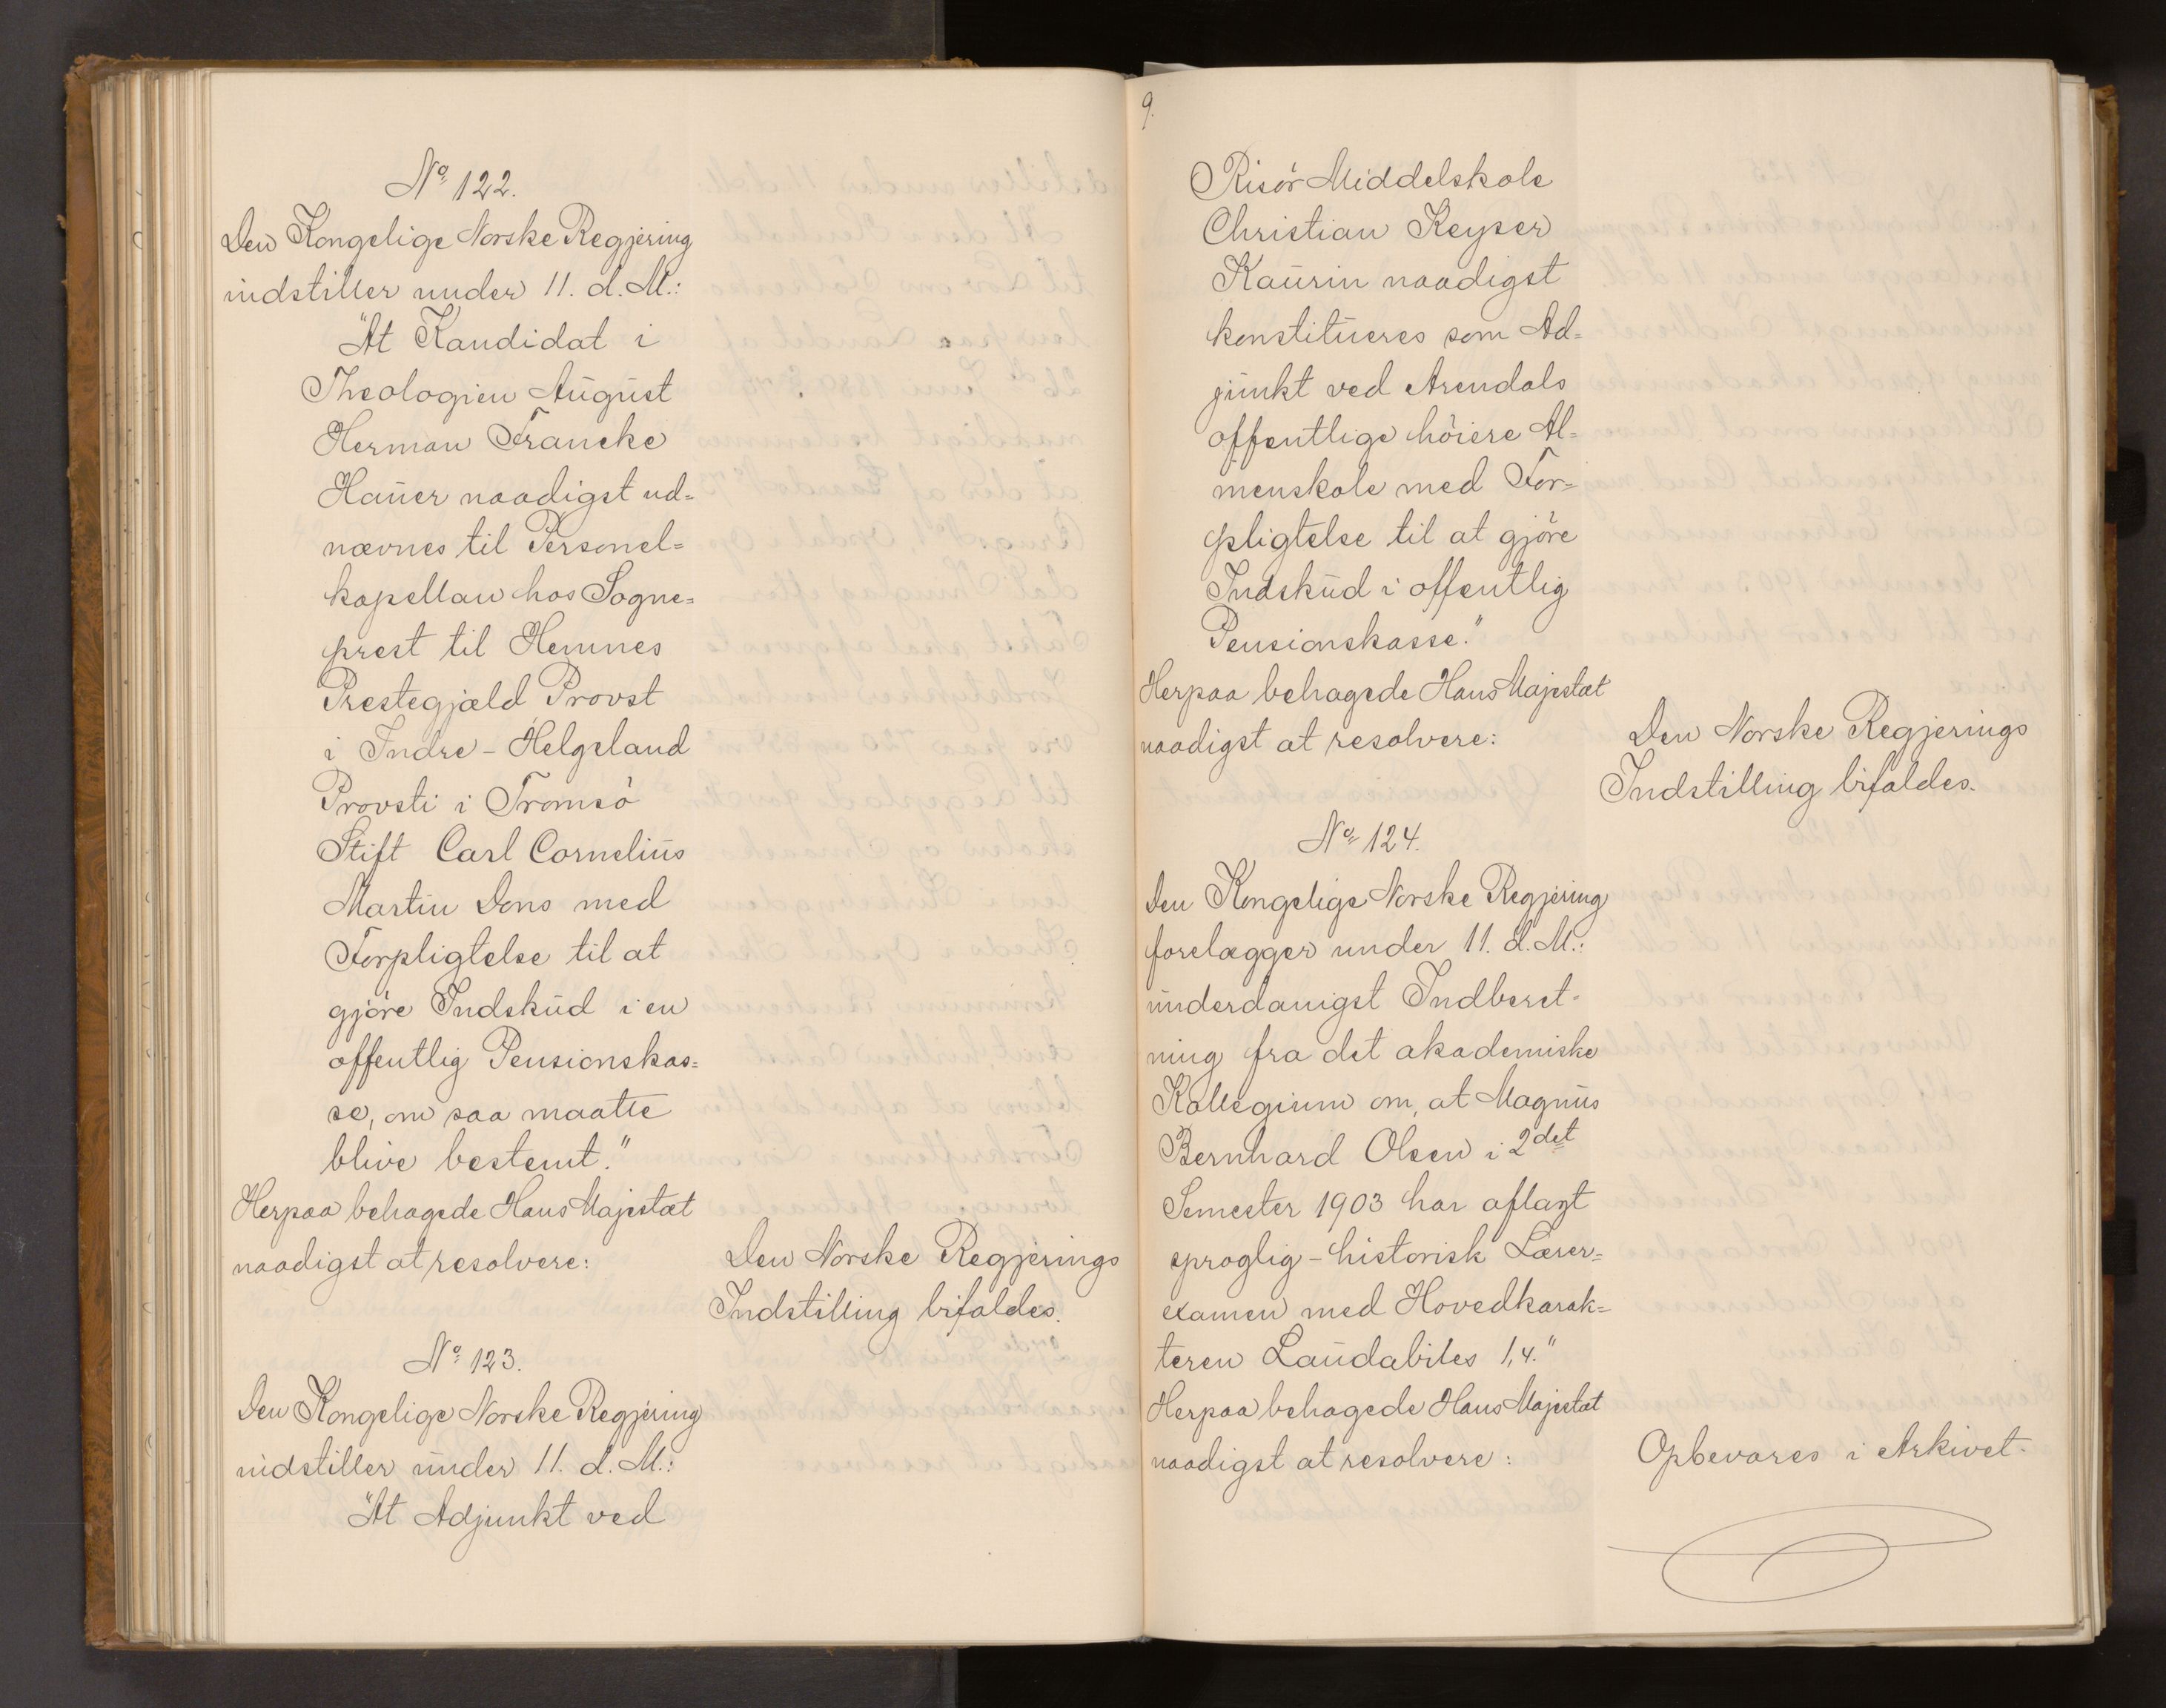 Nº 122.
Den Kongelige Norske Regjering
indstiller under 11. d. M.:
"At Kandidat i
Theologien August
Herman Francke
Hauer naadigst ud=
nævnes til Personel=
kapellan hos Sogne=
prest til Hemnes
Prestegjæld Provst
i Indre-Helgeland
Provsti i Tromsö
Stift Carl Cornelius
Martin Dons med
Forpligtelse til at
gjöre Indskud i en
offentlig Pensionskas=
se, om saa maatte
blive bestemt."
Herpaa behagede Hans Majestæt
naadigst at resolvere:
Den Norske Regjerings
Indstilling bifaldes.
Nº 123.
Den Kongelige Norske Regjering
indstiller under 11. d. M.:
"At Adjunkt ved
9.
Risör Middelskole
Christian Keyser
Kaurin naadigst
konstitueres som Ad=
junkt ved Arendals
offentlige höiere Al=
menskole med For=
pligtelse til at gjöre
Indskud i offentlig
Pensionskasse."
Herpaa behagede Hans Majestæt
naadigst at resolvere:
Den Norske Regjerings
Indstilling bifaldes.
Nº 124.
Den Kongelige Norske Regjering
forelægger under 11. d. M.:
underdanigst Indberet-
ning fra det akademiske
Kollegium om, at Magnus
Bernhard Olsen i 2det
Semester 1903 har aflagt
sproglig-historisk Lærer=
examen med Hovedkarak=
teren Laudabiles 1,4."
Herpaa behagede Hans Majestæt
naadigst at resolvere:
Opbevares i Arkivet.